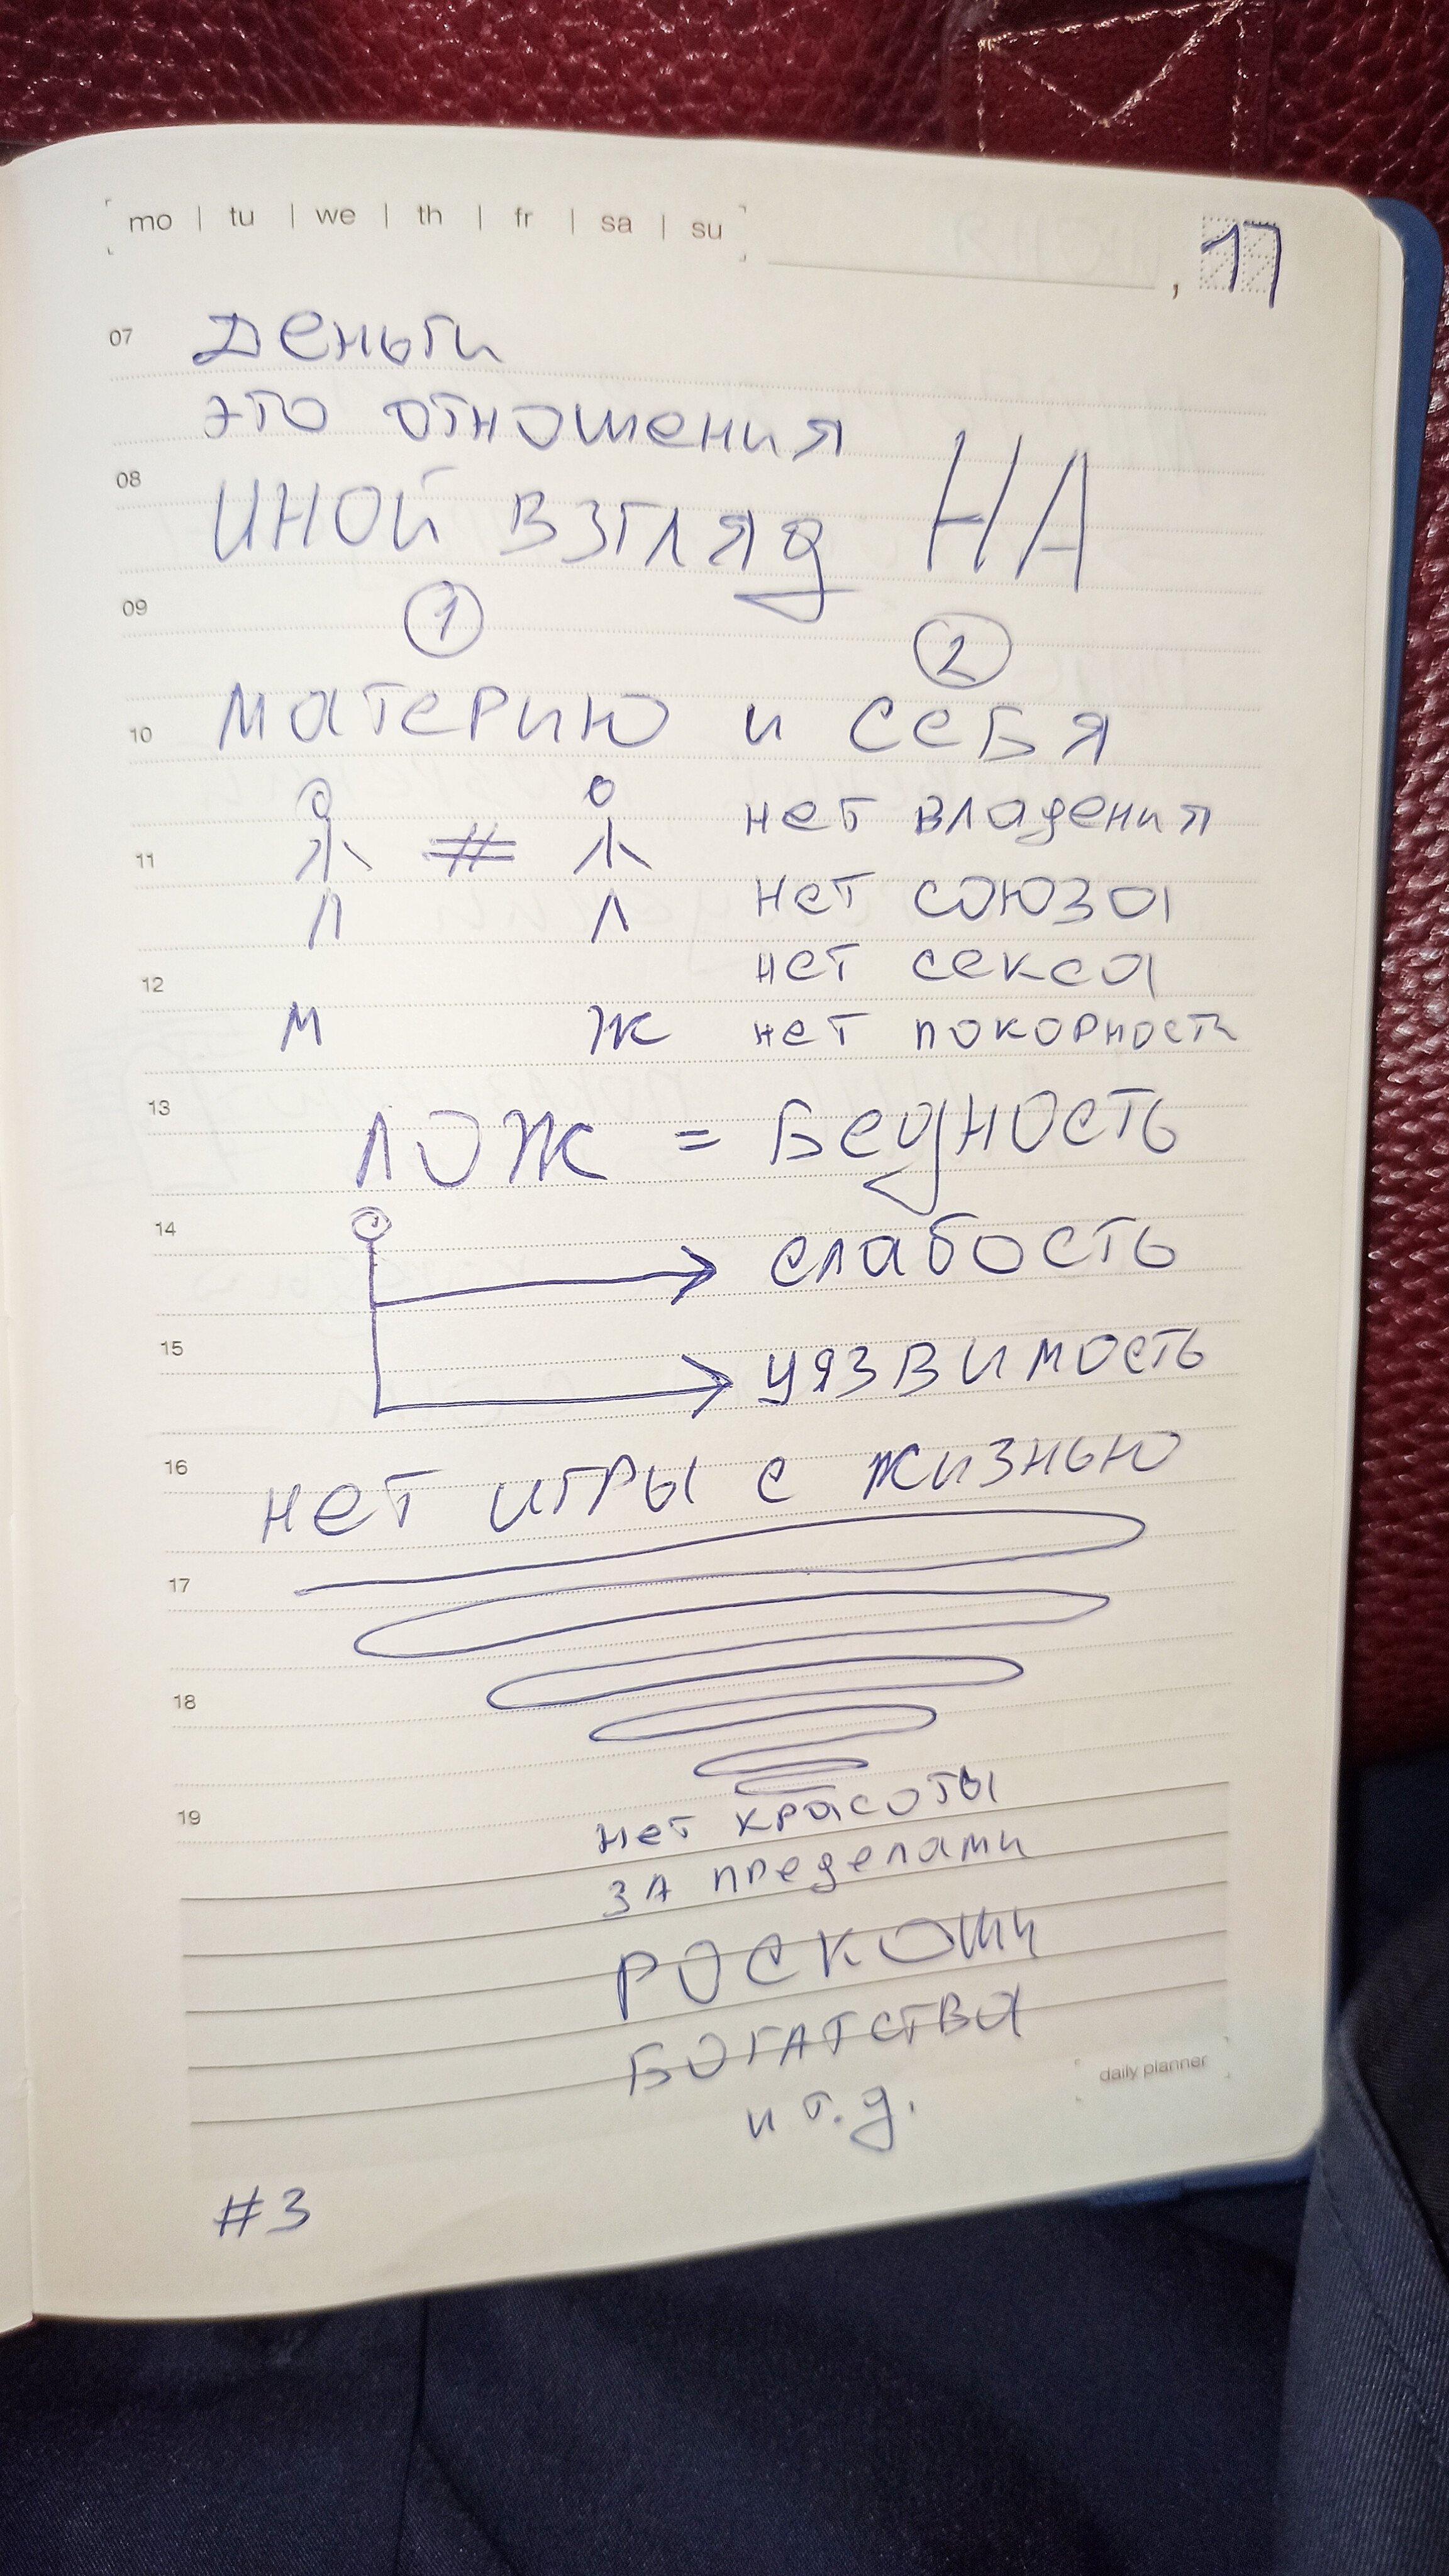 mo | tu | we | th | fr | sa | su
, 17
07 Деньги
это отношения
08 ИНОЙ ВЗГЛЯД НА
09 1 2
10 материю и себя
нет владения
11 #
нет союза
12 нет секса
М Ж нет покорности
13 ЛОЖ = Бедность
14 слабость
15 уязвимость
16 нет игры с жизнью
17
18
19 нет красоты
за пределами
РОСКОШИ
БОГАТСТВА
и т.д.
daily planner
#3